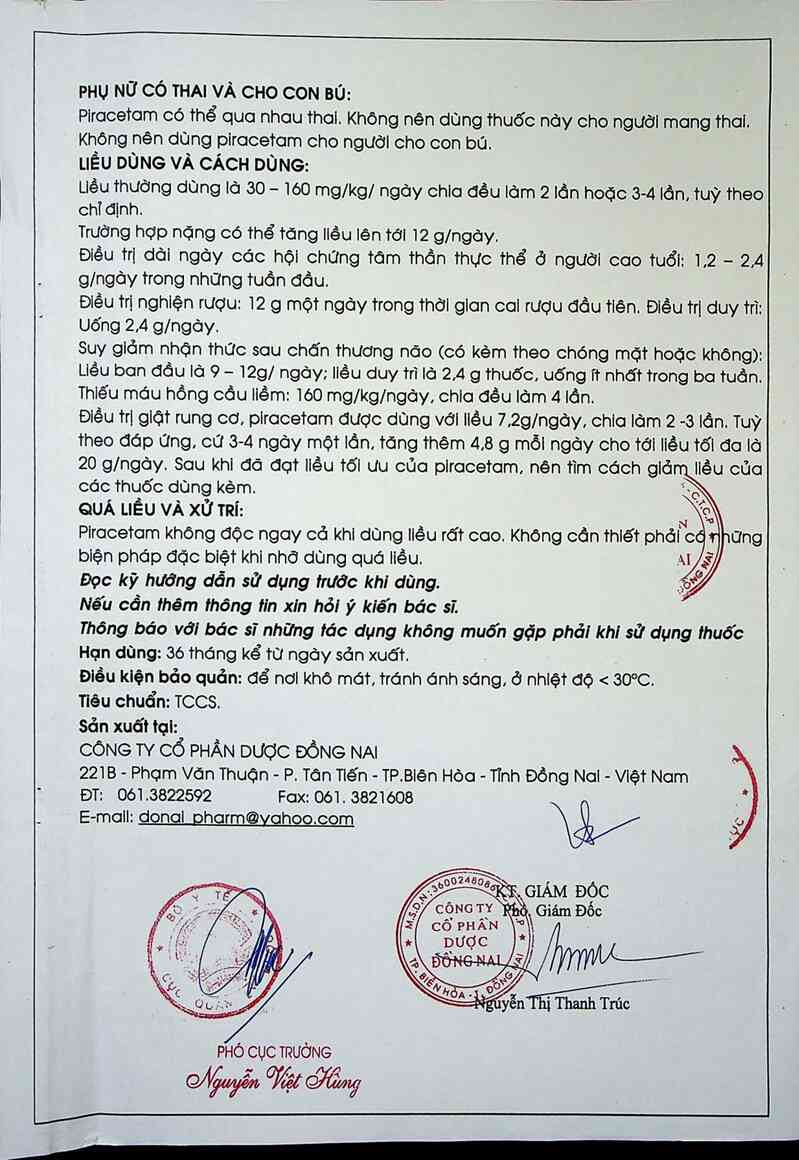 PHỤ NỮ CÓ THAI VÀ CHO CON BÚ:
Piracetam có thể qua nhau thai. Không nên dùng thuốc này cho người mang thai.
Không nên dùng piracetam cho người cho con bú.
LIỀU DÙNG VÀ CÁCH DÙNG:
Liều thường dùng là 30 – 160 mg/kg/ ngày chia đều làm 2 lần hoặc 3-4 lần, tuỳ theo
chỉ định.
Trường hợp nặng có thể tăng liều lên tới 12 g/ngày.
Điều trị dài ngày các hội chứng tâm thần thực thể ở người cao tuổi: 1,2 – 2,4
g/ngày trong những tuần đầu.
Điều trị nghiện rượu: 12 g một ngày trong thời gian cai rượu đầu tiên. Điều trị duy trì:
Uống 2,4 g/ngày.
Suy giảm nhận thức sau chấn thương não (có kèm theo chóng mặt hoặc không):
Liều ban đầu là 9 – 12g/ ngày; liều duy trì là 2,4 g thuốc, uống ít nhất trong ba tuần.
Thiếu máu hồng cầu liềm: 160 mg/kg/ngày, chia đều làm 4 lần.
Điều trị giật rung cơ, piracetam được dùng với liều 7,2g/ngày, chia làm 2 -3 lần. Tuỳ
theo đáp ứng, cứ 3-4 ngày một lần, tăng thêm 4,8 g mỗi ngày cho tới liều tối đa là
20 g/ngày. Sau khi đã đạt liều tối ưu của piracetam, nên tìm cách giảm liều của
các thuốc dùng kèm.
QUÁ LIỀU VÀ XỬ TRÍ:
Piracetam không độc ngay cả khi dùng liều rất cao. Không cần thiết phải có những
biện pháp đặc biệt khi nhỡ dùng quá liều.
Đọc kỹ hướng dẫn sử dụng trước khi dùng.
Nếu cần thêm thông tin xin hỏi ý kiến bác sĩ.
Thông báo với bác sĩ những tác dụng không muốn gặp phải khi sử dụng thuốc
Hạn dùng: 36 tháng kể từ ngày sản xuất.
Điều kiện bảo quản: để nơi khô mát, tránh ánh sáng, ở nhiệt độ < 30ºC.
Tiêu chuẩn: TCCS.
Sản xuất tại:
CÔNG TY CỔ PHẦN DƯỢC ĐỒNG NAI
221B - Phạm Văn Thuận - P. Tân Tiến - TP.Biên Hòa - Tỉnh Đồng Nai - Việt Nam
ĐT: 061.3822592 Fax: 061. 3821608
E-mail: donai_pharm@yahoo.com
KT. GIÁM ĐỐC
Phó. Giám Đốc
M.S.D.N:
CÔNG TY
CỔ PHẦN
DƯỢC
ĐỒNG NAI
TP. BIÊN HÒA - T. ĐỒNG NAI
Nguyễn Thị Thanh Trúc
BỘ Y TẾ
CỤC QUẢN
PHÓ CỤC TRƯỞNG
Nguyễn Việt Hùng